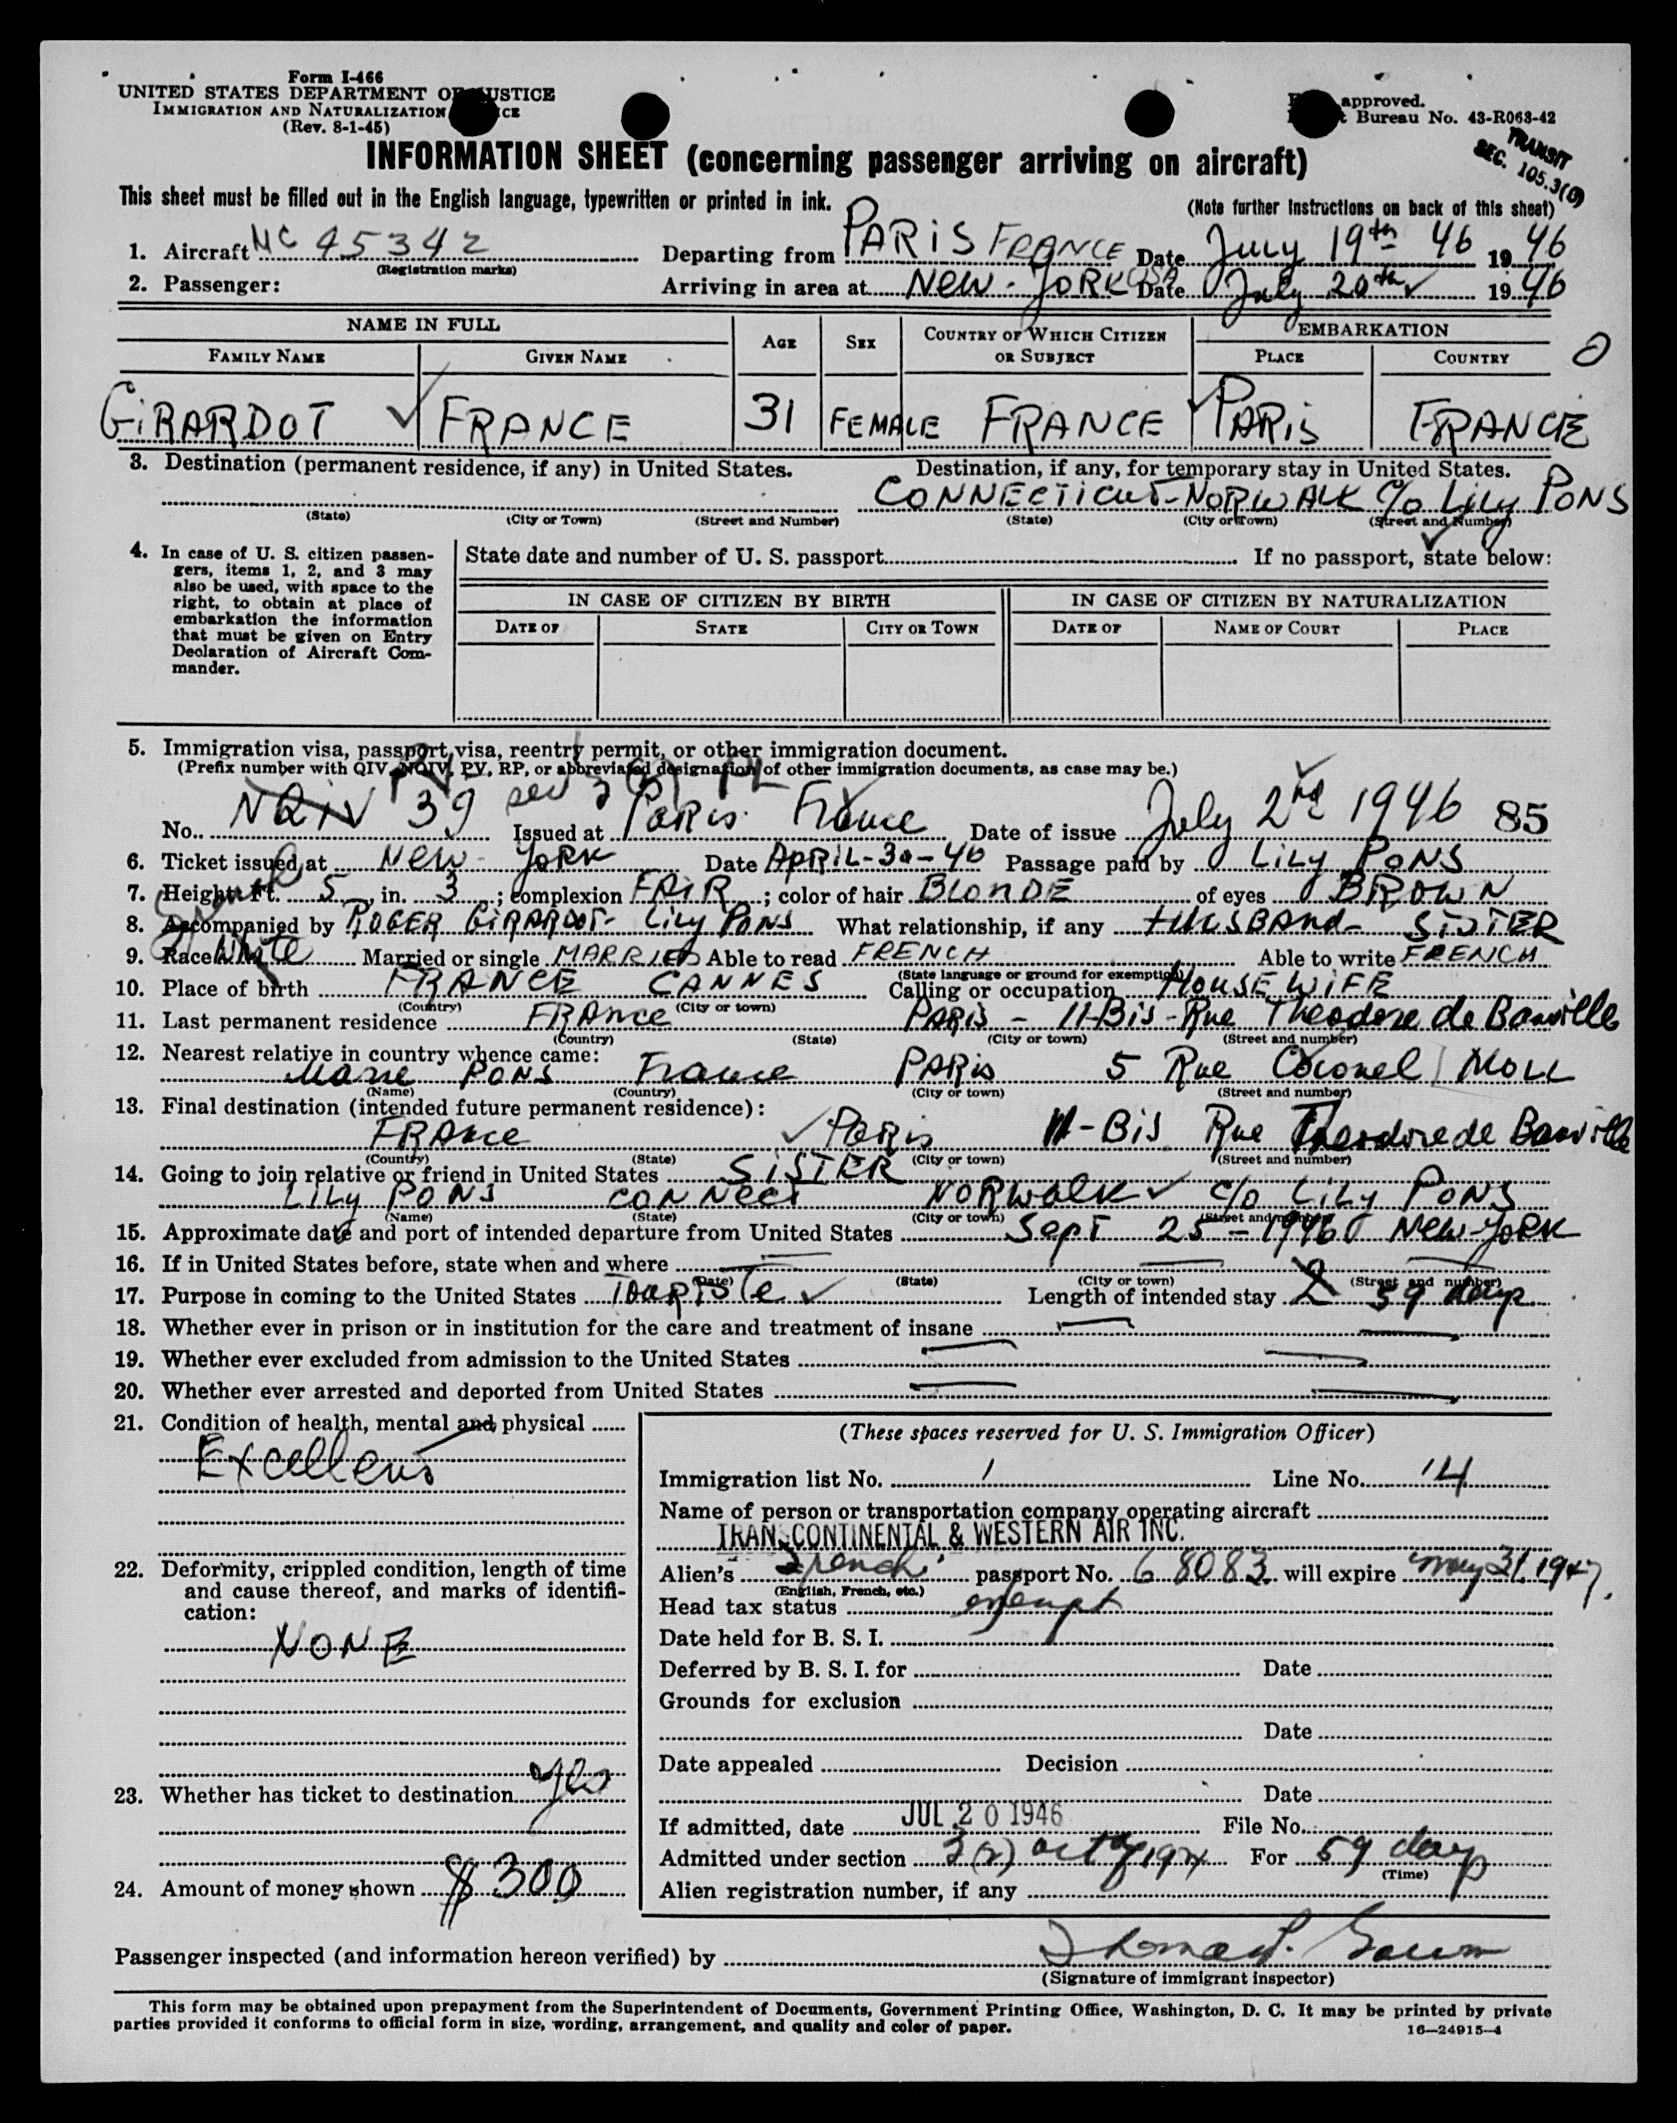 Form I-466
UNITED STATES DEPARTMENT OF JUSTICE
IMMIGRATION AND NATURALIZATION
(Rev. 8-1-45)
approved.
Bureau No. 43-R063-42
TRANSIT
SEC. 105.3(0)
INFORMATION SHEET (concerning passenger arriving on aircraft)
This sheet must be filled out in the English language, typewritten or printed in ink.
(Note further instructions on back of this sheet)
1. Aircraft NC 45342 Departing from PARIS FRANCE Date July 19th 46 1946
(Registration marks)
2. Passenger: Arriving in area at NEW-YORK USA Date July 20th 1946
NAME IN FULL AGE SEX COUNTRY OF WHICH CITIZEN OR SUBJECT EMBARKATION
FAMILY NAME GIVEN NAME PLACE COUNTRY
GIRARDOT FRANCE 31 FEMALE FRANCE PARIS FRANCE
3. Destination (permanent residence, if any) in United States. Destination, if any, for temporary stay in United States.
CONNECTICUT-NORWALK C/O LILY PONS
(State) (City or Town) (Street and Number) (State) (City or Town) (Street and Number)
4. In case of U. S. citizen passengers, items 1, 2, and 3 may also be used, with space to the right, to obtain at place of embarkation the information that must be given on Entry Declaration of Aircraft Commander.
State date and number of U. S. passport If no passport, state below:
IN CASE OF CITIZEN BY BIRTH IN CASE OF CITIZEN BY NATURALIZATION
DATE OF STATE CITY OR TOWN DATE OF NAME OF COURT PLACE
5. Immigration visa, passport visa, reentry permit, or other immigration document.
(Prefix number with QIV, NQIV, PV, RP, or abbreviated designation of other immigration documents, as case may be.)
No. NQIV 39 Issued at PARIS France Date of issue July 2nd 1946 85
6. Ticket issued at NEW-YORK Date APRIL-30-46 Passage paid by LILY PONS
7. Height, Ft. 5, in. 3; complexion FAIR; color of hair BLONDE of eyes BROWN
8. Accompanied by ROGER GIRARDOT- LILY PONS What relationship, if any HUSBAND- SISTER
9. Race White Married or single MARRIED Able to read FRENCH Able to write FRENCH
(State language or ground for exemption)
10. Place of birth FRANCE CANNES Calling or occupation HOUSEWIFE
(Country) (City or town)
11. Last permanent residence FRANCE PARIS - 11-Bis-Rue Theodore de Banville
(Country) (State) (City or town) (Street and number)
12. Nearest relative in country whence came:
Marie PONS France PARIS 5 Rue Colonel MOLL
(Name) (Country) (City or town) (Street and number)
13. Final destination (intended future permanent residence):
FRANCE PARIS 11-Bis Rue Theodore de Banville
(Country) (State) (City or town) (Street and number)
14. Going to join relative or friend in United States SISTER
LILY PONS CONNECT NORWALK C/O LILY PONS
(Name) (State) (City or town) (Street and number)
15. Approximate date and port of intended departure from United States Sept 25-1946 NEW-YORK
16. If in United States before, state when and where
(Date) (State) (City or town) (Street and number)
17. Purpose in coming to the United States Touriste Length of intended stay 59 days
18. Whether ever in prison or in institution for the care and treatment of insane
19. Whether ever excluded from admission to the United States
20. Whether ever arrested and deported from United States
21. Condition of health, mental and physical
Excellent
22. Deformity, crippled condition, length of time and cause thereof, and marks of identification:
NONE
23. Whether has ticket to destination Yes
24. Amount of money shown $300
(These spaces reserved for U. S. Immigration Officer)
Immigration list No. 1 Line No. 14
Name of person or transportation company operating aircraft
TRANSCONTINENTAL & WESTERN AIR INC.
Alien's French passport No. 68083 will expire May 31, 1947.
(English, French, etc.)
Head tax status exempt
Date held for B. S. I.
Deferred by B. S. I. for Date
Grounds for exclusion
Date
Date appealed Decision
Date
If admitted, date JUL 20 1946 File No.
Admitted under section 3(2) act of 1924 For 59 days
(Time)
Alien registration number, if any
Passenger inspected (and information hereon verified) by
(Signature of immigrant inspector)
This form may be obtained upon prepayment from the Superintendent of Documents, Government Printing Office, Washington, D. C. It may be printed by private
parties provided it conforms to official form in size, wording, arrangement, and quality and color of paper.
16—24915-4